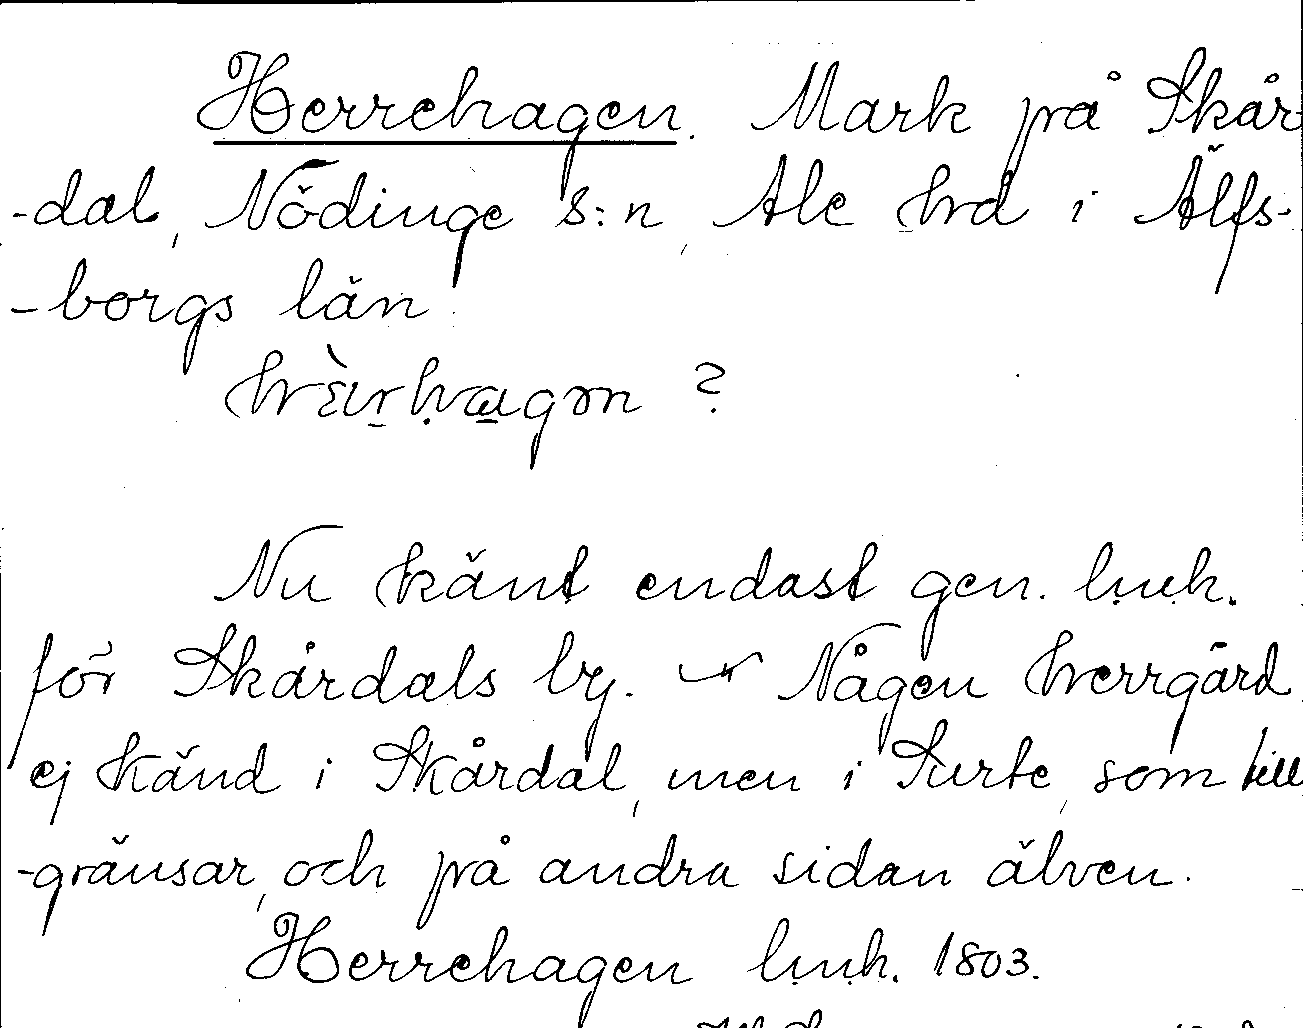 Herrehagen. Mark på Skår-
-dal, Nödinge s:n, Ale hrd i Älfs-
-borgs län.
?
Nu känt endast gen. l.u.k.
för Skårdals by. Någon herrgård
ej känd i Skårdal, men i Surte, som till
-gränsar, och på andra sidan älven.
Herrehagen l.u.k. 1803.